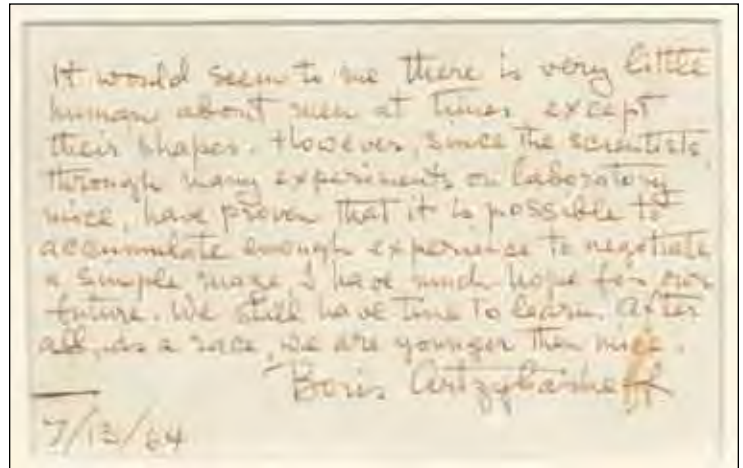 It would seem to me there is very little
human about men at times, except
their shapes. However, since the scientists,
through many experiments on laboratory
mice, have proven that it is possible to
accumulate enough experience to negotiate
a simple maze, I have much hope for our
future. We still have time to learn. After
all, as a race, we are younger then mice.
Boris Artzybasheff
7/13/64